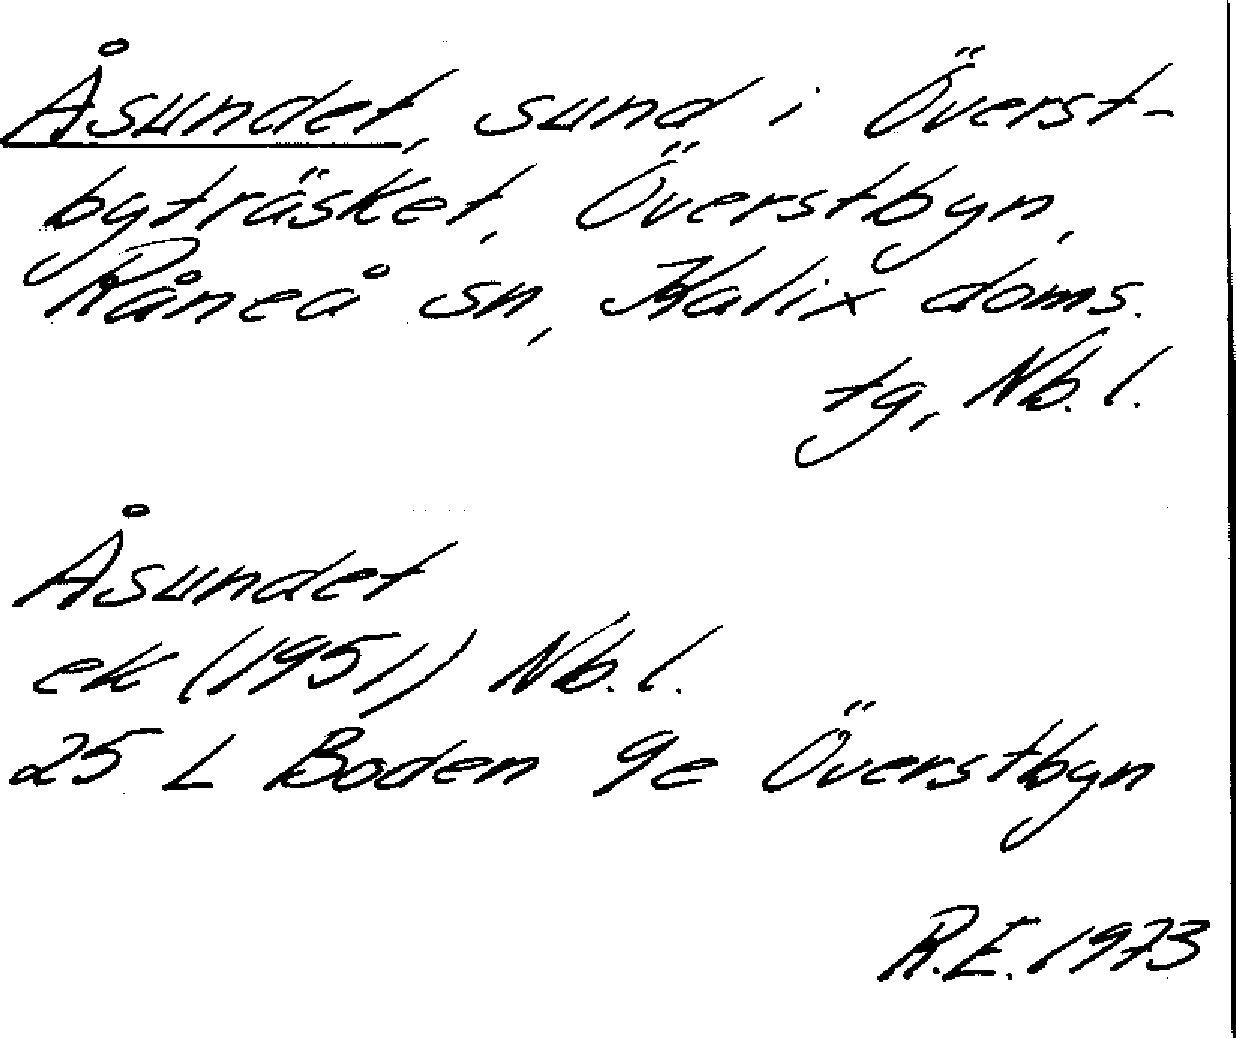 Åsundet, sund i Överst-
byträsket, Överstbyn,
Råneå sn, Kalix doms.
tg, Nb.l.
Åsundet
ek (1951) Nb.l.
25 L Boden 9e Överstbyn
R.E. 1973